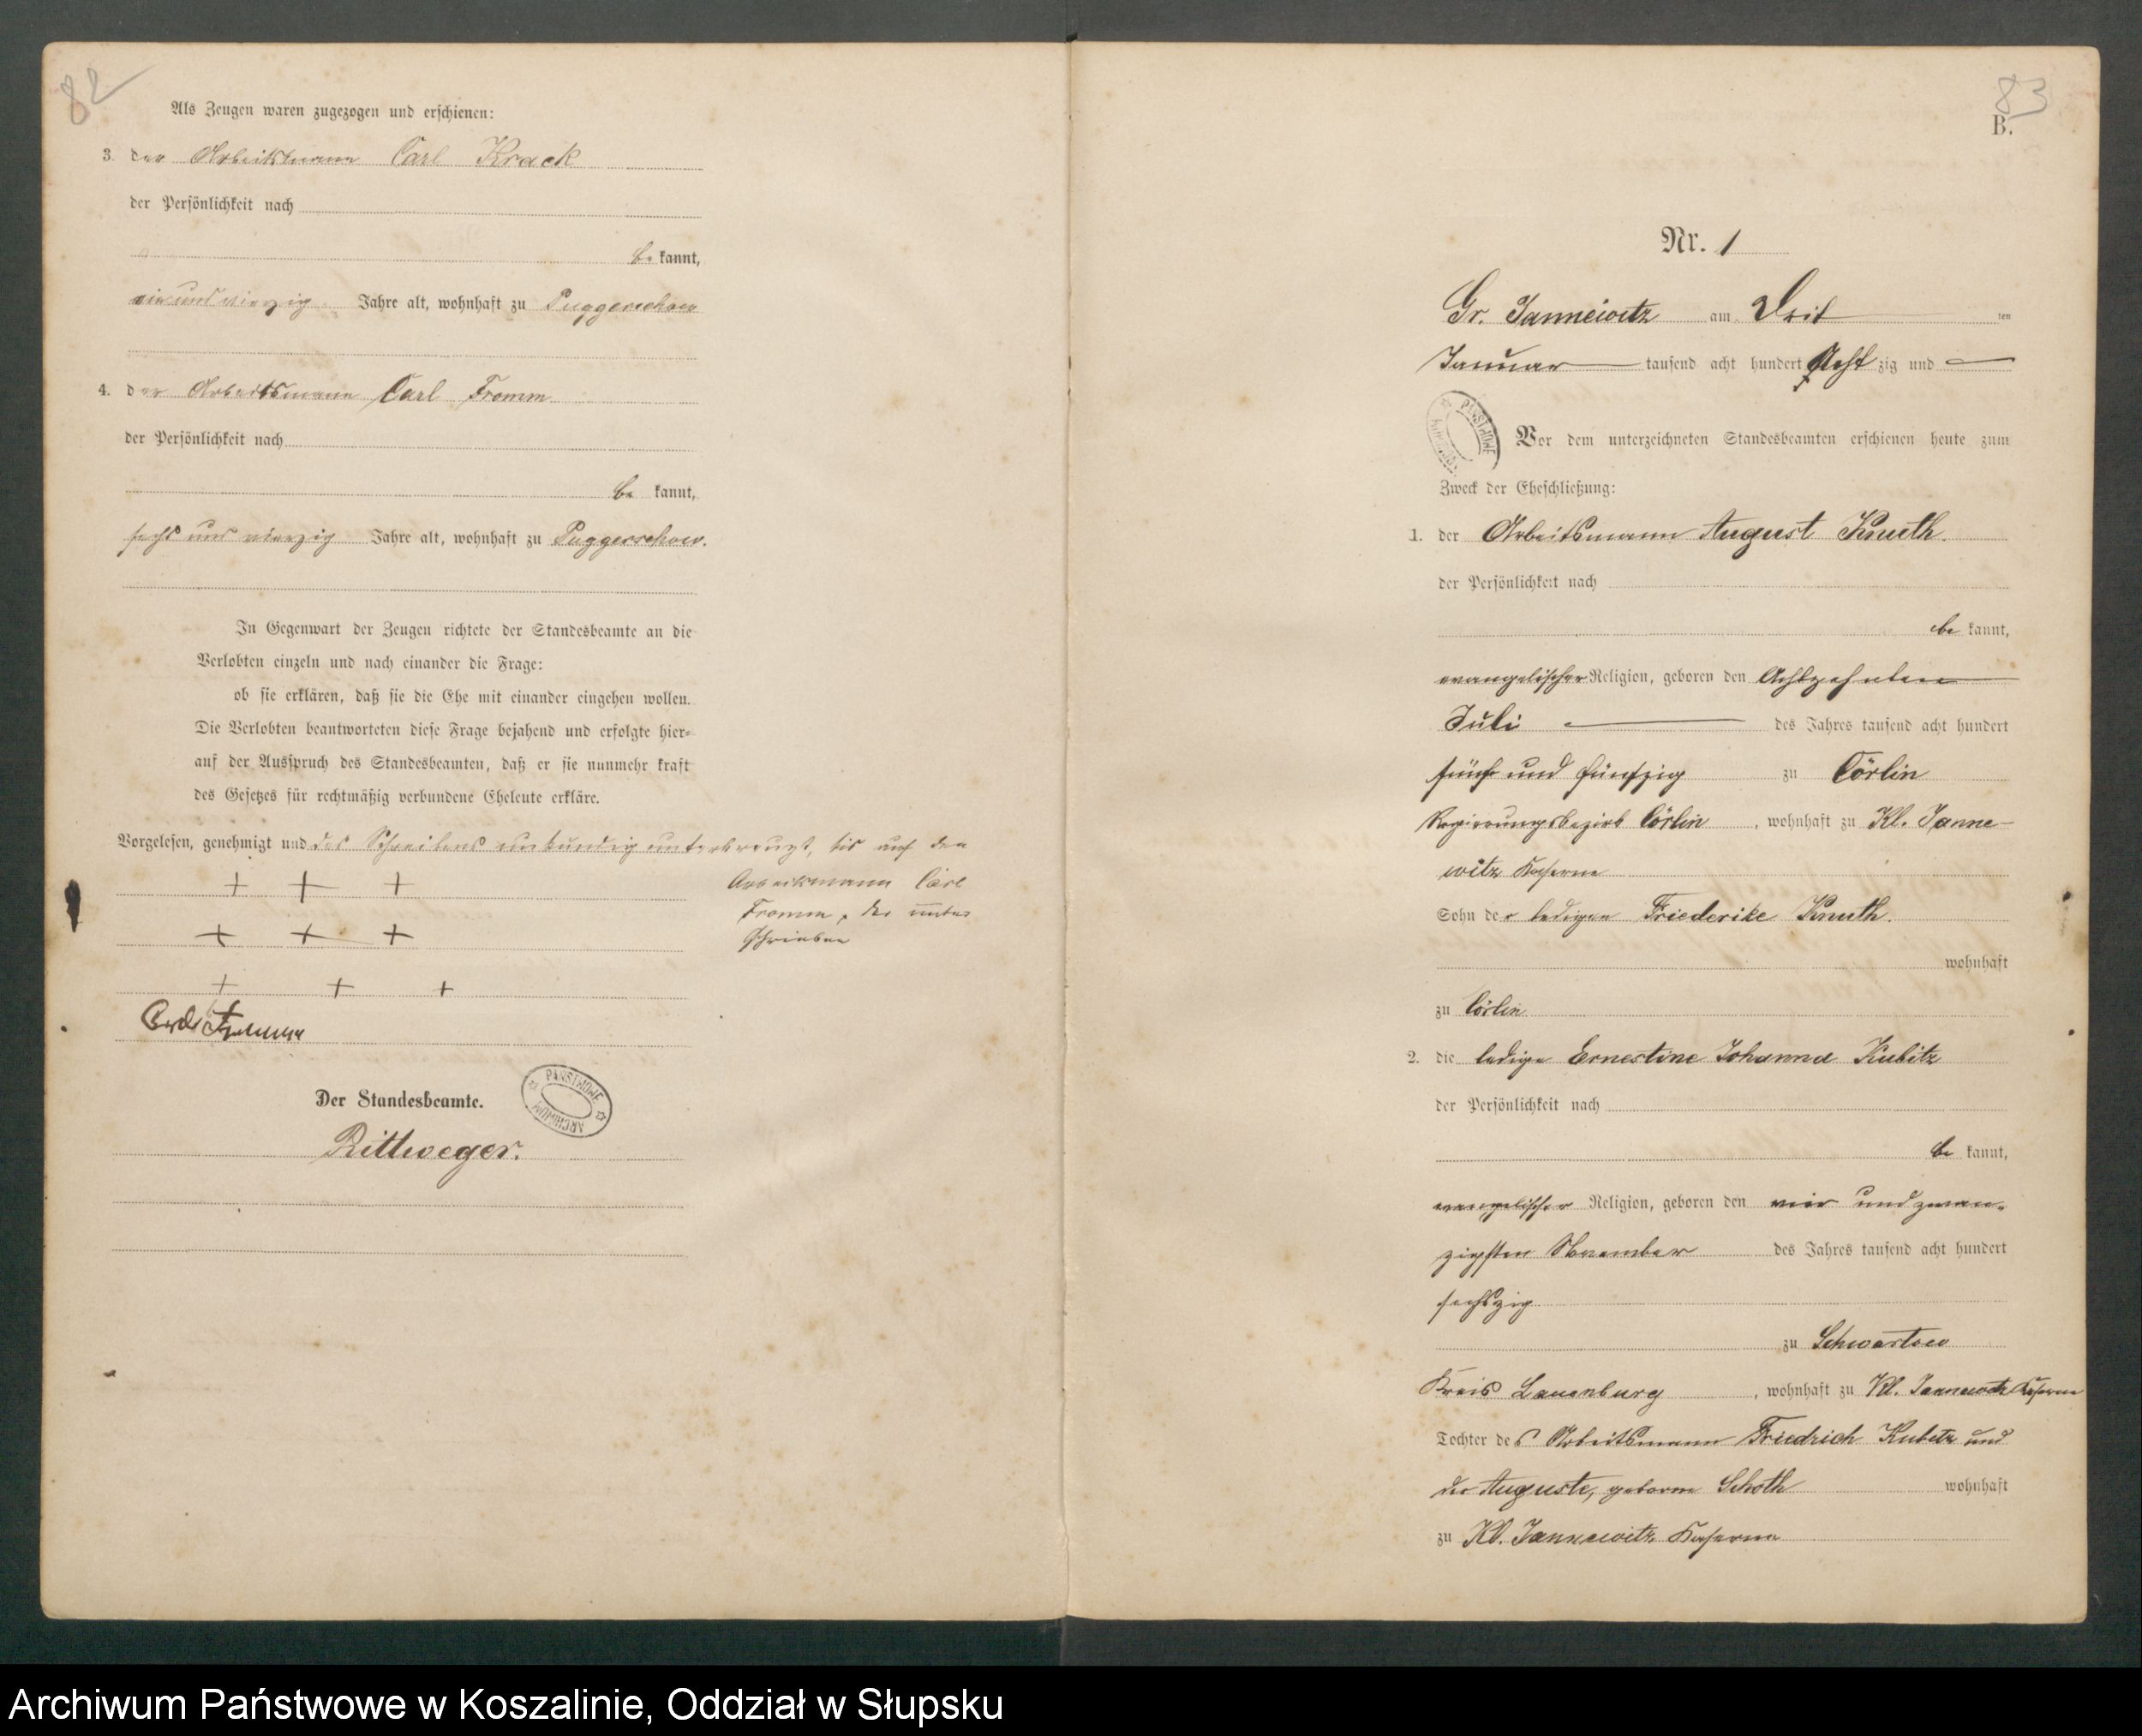 82
Als Zeugen waren zugezogen und erschienen:
3. der Arbeitsmann Carl Krack
der Persönlichkeit nach
be kannt,
ein und vierzig Jahre alt, wohnhaft zu Puggerschow
4. der Arbeitsmann Carl Fromm
der Persönlichkeit nach
be kannt,
sechs und vierzig Jahre alt, wohnhaft zu Puggerschow.
In Gegenwart der Zeugen richtete der Standesbeamte an die
Verlobten einzeln und nach einander die Frage:
ob sie erklären, daß sie die Ehe mit einander eingehen wollen.
Die Verlobten beantworteten diese Frage bejahend und erfolgte hier-
auf der Ausspruch des Standesbeamten, daß er sie nunmehr kraft
des Gesetzes für rechtmäßig verbundene Eheleute erkläre.
Vorgelesen, genehmigt und des Schreibens unkundig unterkreuzt, bis auf den
Arbeitsmann Carl
Fromm, der unter
schrieben
+ + +
+ + +
+ + +
Carl Fromm
Der Standesbeamte.
PAŃSTWOWE ARCHIWUM
Rittweger.
83
B.
Nr. 1
Gr. Jannewitz am Drit ten
Januar tausend acht hundert Acht zig und
PAŃSTWOWE ARCHIWUM
Vor dem unterzeichneten Standesbeamten erschienen heute zum
Zweck der Eheschließung:
1. der Arbeitsmann August Knuth.
der Persönlichkeit nach
be kannt,
evangelischer Religion, geboren den Achtzehnten
Juli des Jahres tausend acht hundert
fünf und fünfzig zu Cörlin
Regierungsbezirk Cörlin, wohnhaft zu Kl. Janne-
witz Kaserne
Sohn der ledigen Friederike Knuth.
wohnhaft
zu Cörlin
2. die ledige Ernestine Johanna Kubitz
der Persönlichkeit nach
be kannt,
evangelischer Religion, geboren den vier und zwan-
zigsten November des Jahres tausend acht hundert
sechszig
zu Schwartow
Kreis Lauenburg, wohnhaft zu Kl. Jannewitz Kaserne
Tochter des Arbeitsmann Friedrich Kubitz und
der Auguste, geborne Schoth wohnhaft
zu Kl. Jannewitz Kaserne
Archiwum Państwowe w Koszalinie, Oddział w Słupsku